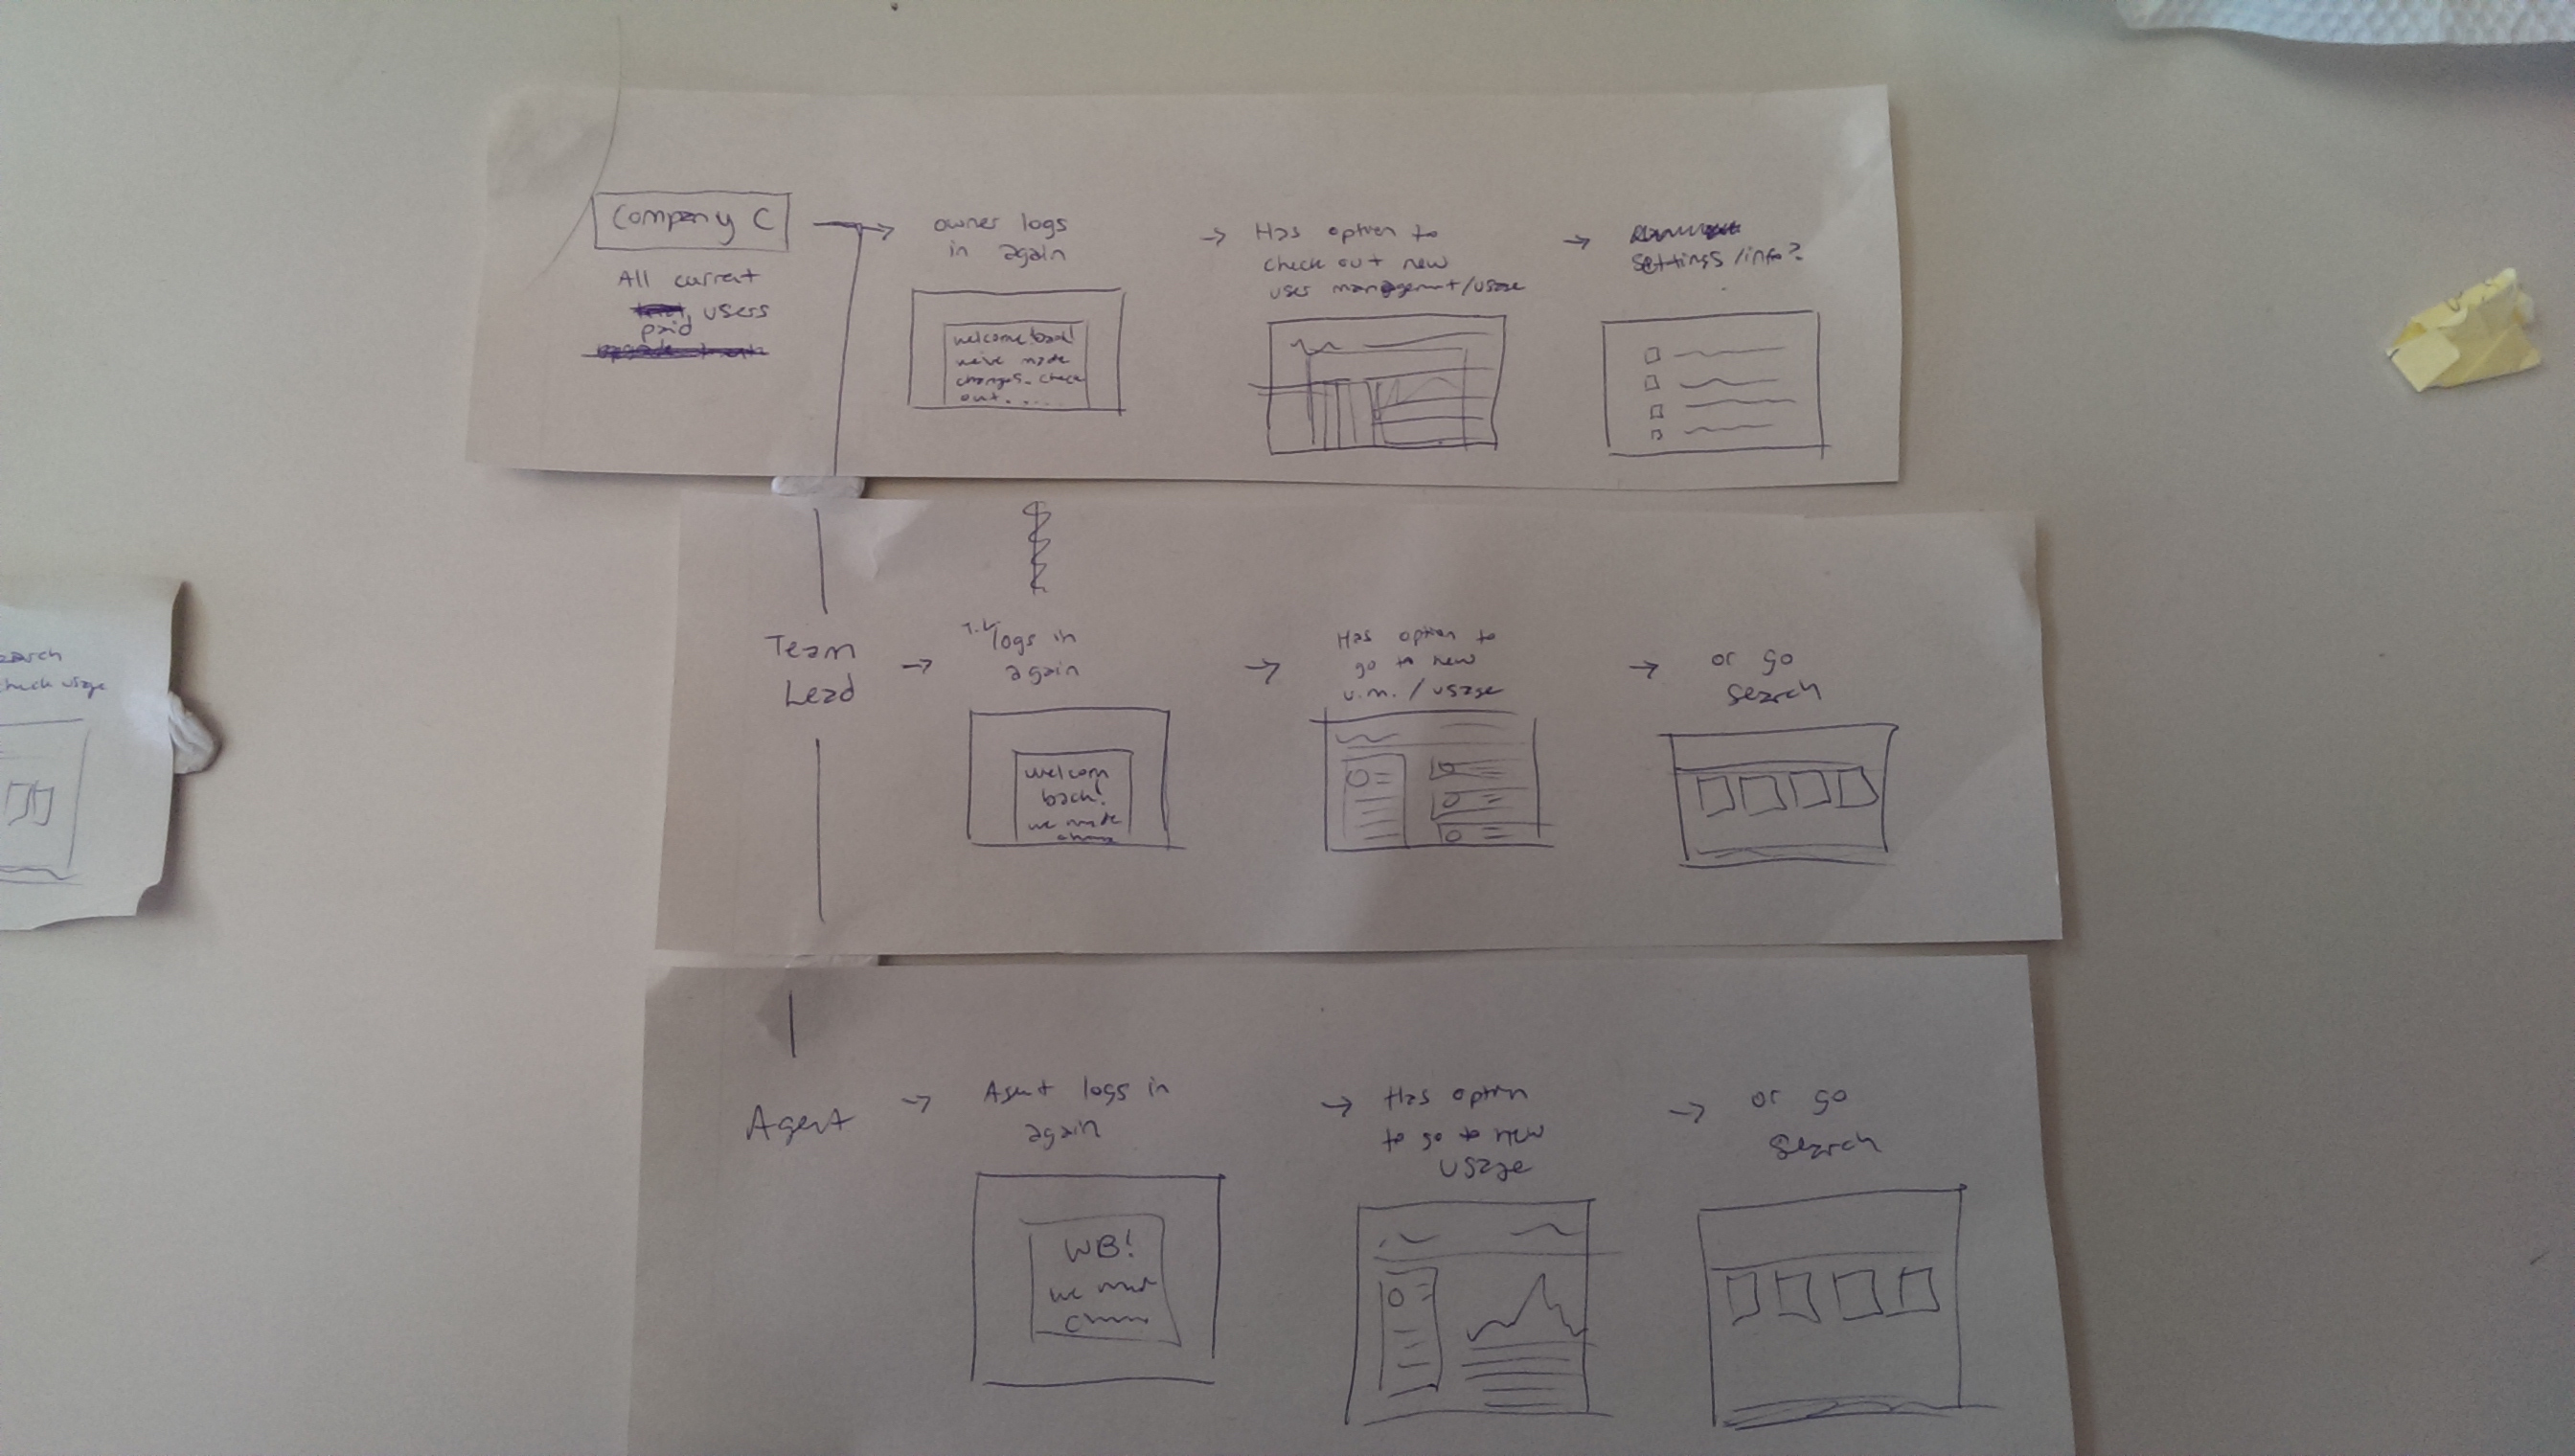 Company C
All current
users
paid
owner logs
in again
welcome back!
we've made
changes. check
out.....
Has option to
check out new
user management/usage
settings/info?
Team
Lead
T.L. logs in
again
welcom
back!
we made
Has option to
go to new
u.m. / usage
or go
search
Agent
Agent logs in
again
WB!
we
Has option
to go to new
usage
or go
search
check usage